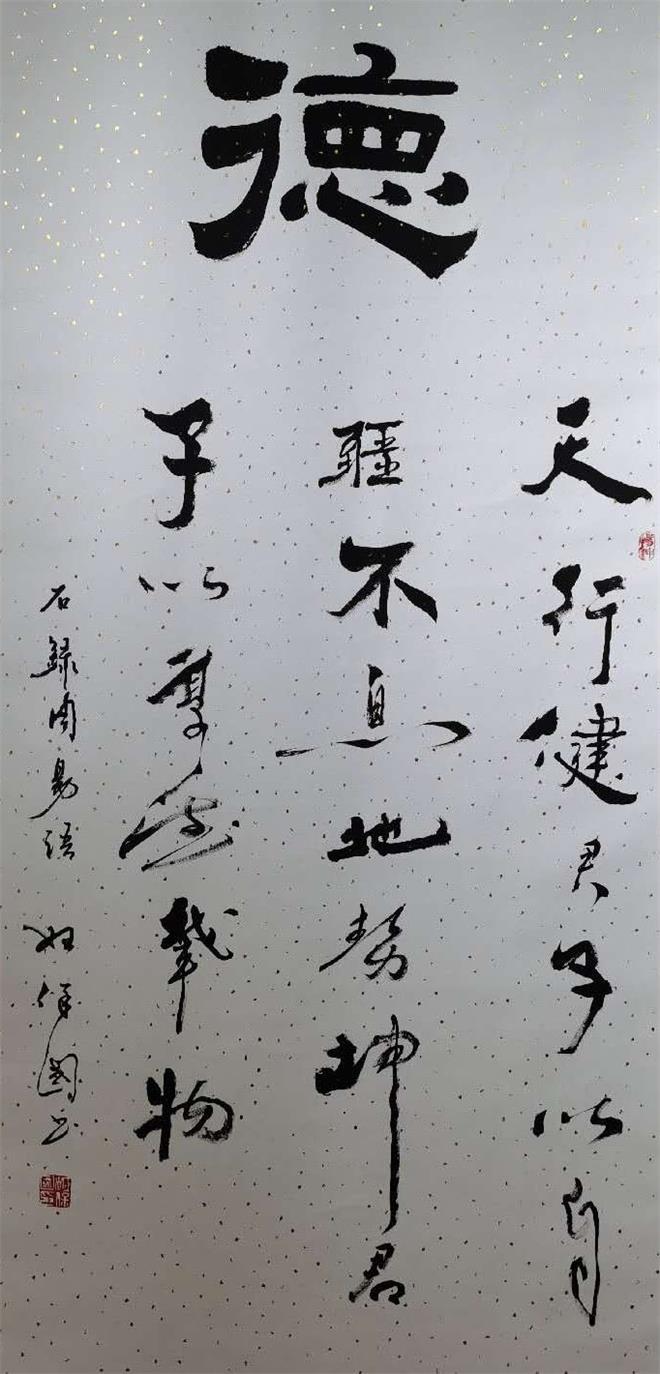 德
天行健君子以自
彊不息地勢坤君
子以厚德載物
右録周易語 保國书